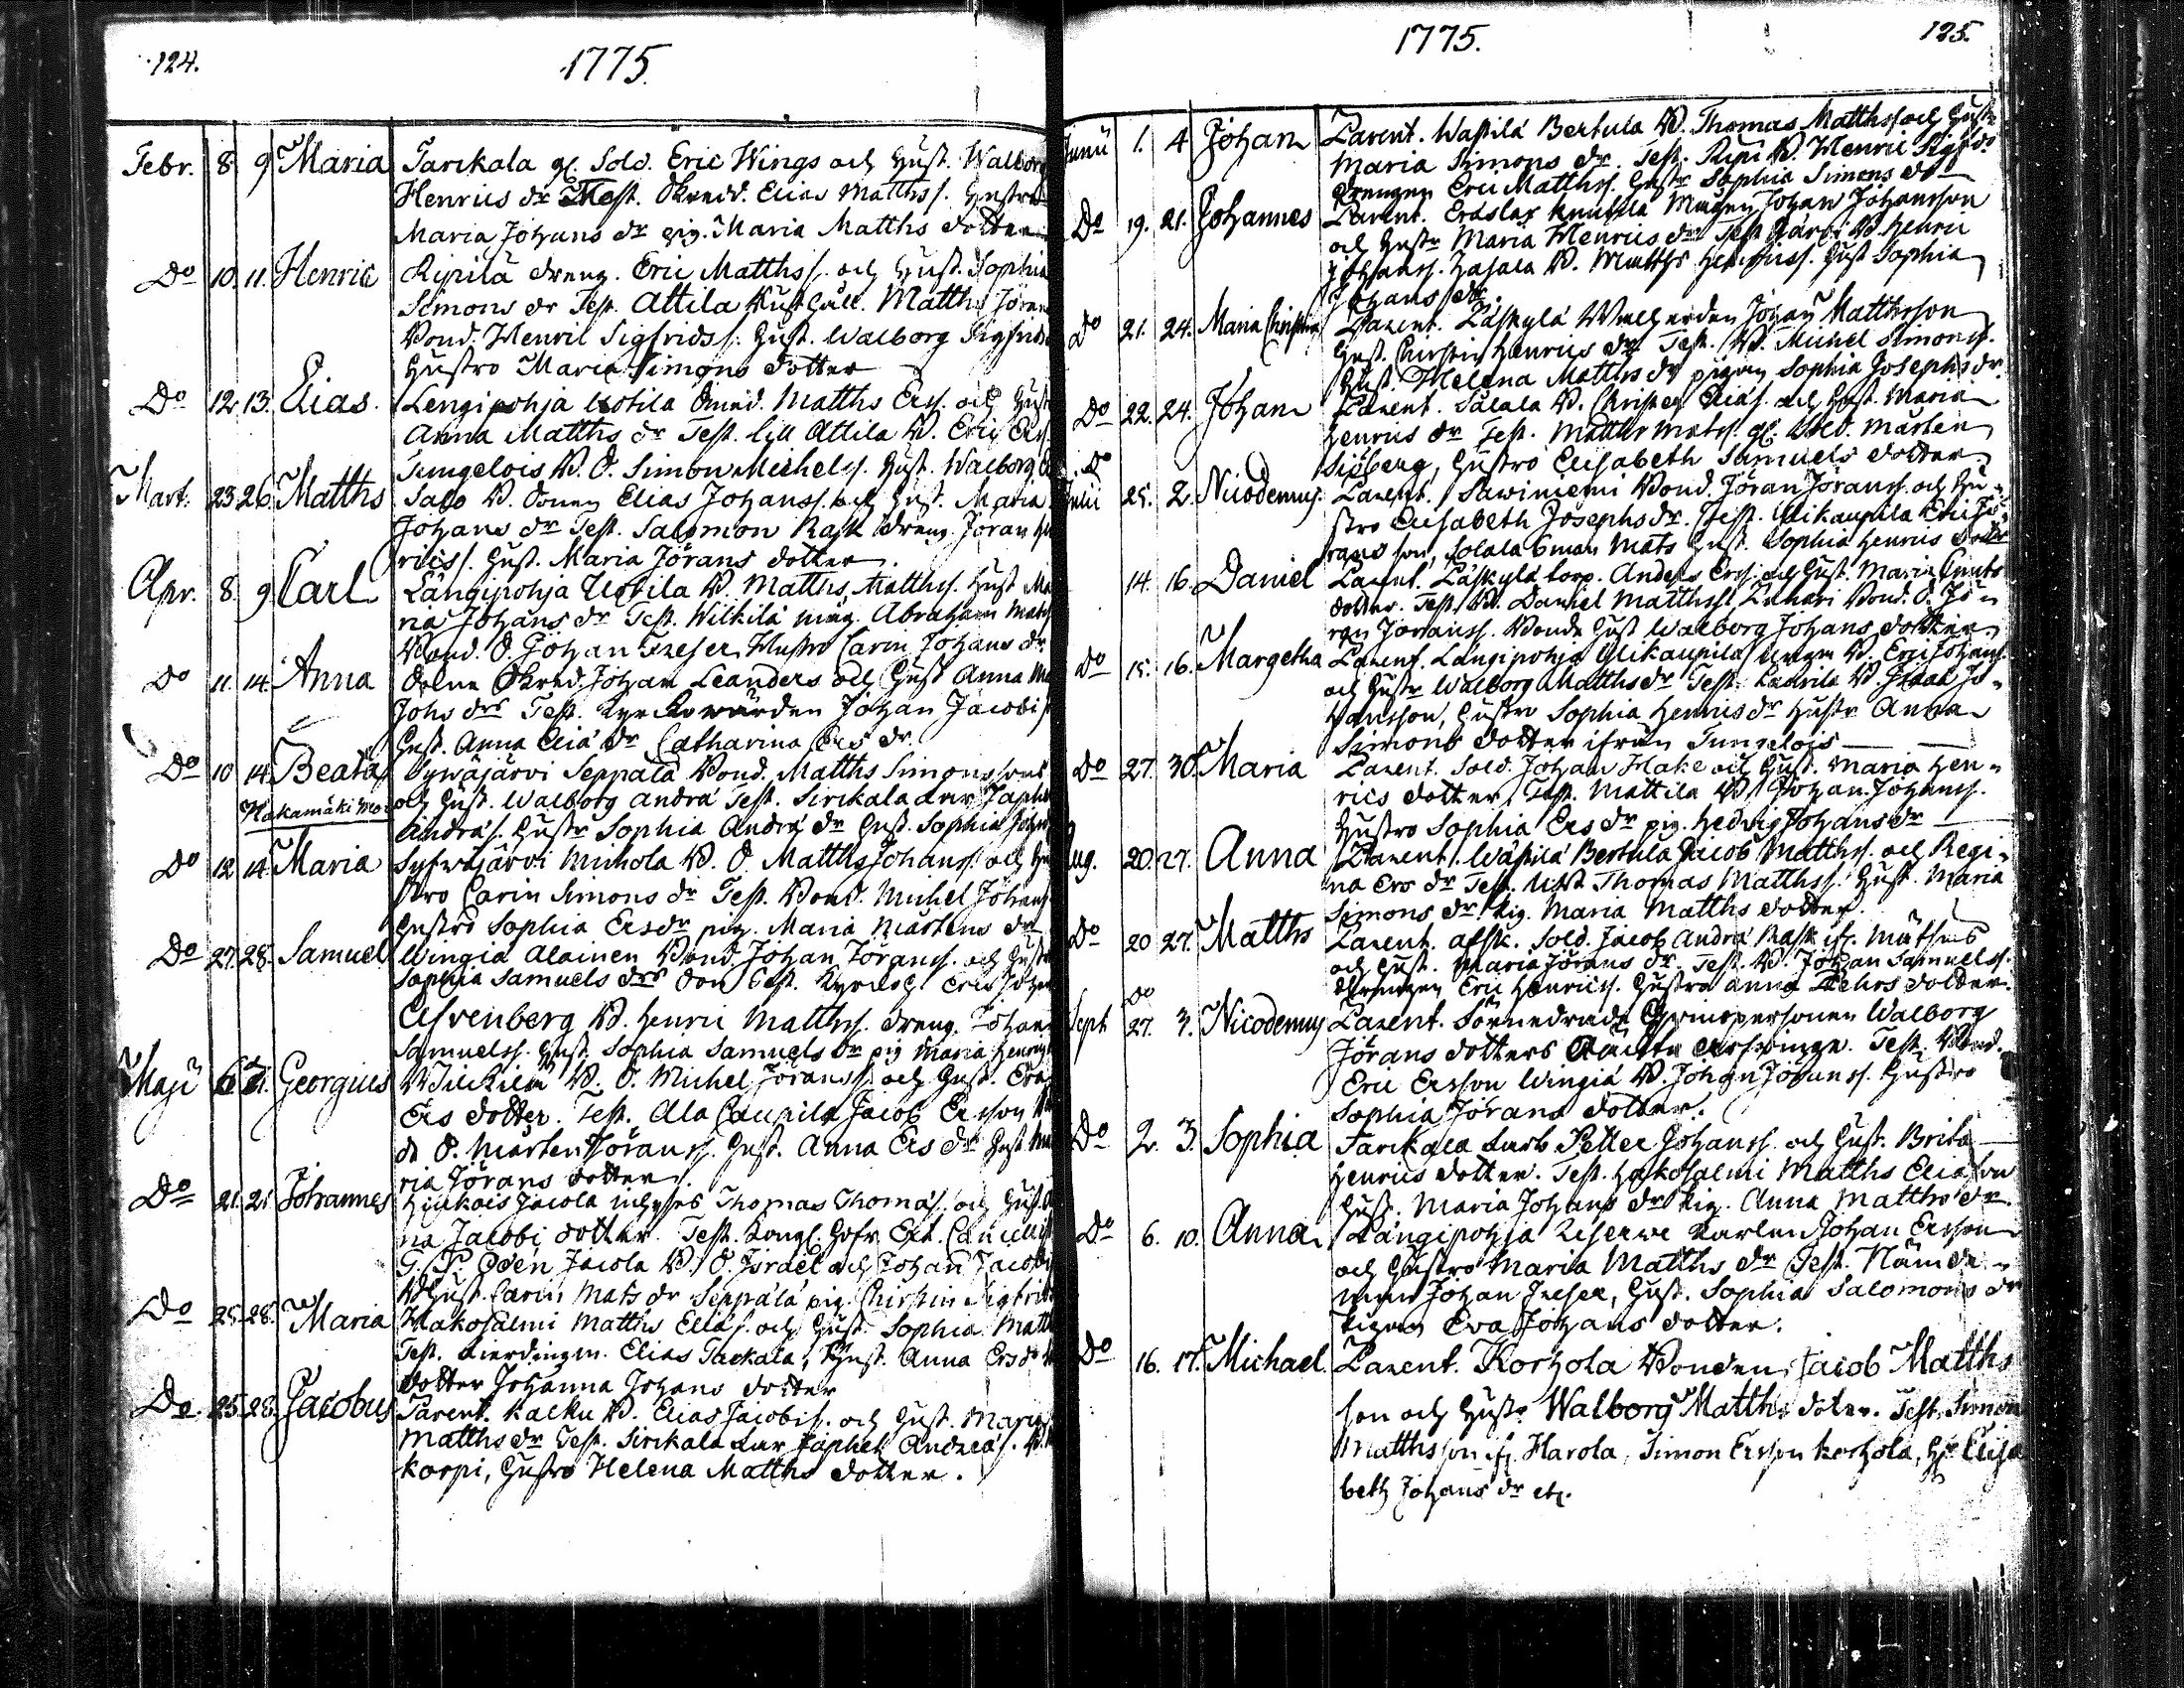 124.
1775.
Febr. 8. 9. Maria Tarikala Sold. Eric Wings och Hust. Walborg
Henrics dr Test. Skredd. Elias Matthss. Hustro
Maria Johans dr pig. Maria Matths dotter
Do 10. 11. Henric Ripilä dreng. Eric Matthss. och Hust. Sophia
Simons dr Test. Attila Matths Jörans
Bond. Henric Sigfridss. Hust. Walborg Sigfrids
Hustro Maria Simons dotter
Do 12. 13. Elias. Lengipohja Uotila Matths Ers. och Hust
Anna Matths dr Test. lill Attila B. Eric Ers.
Tungelois B. O. Simon Michelss. Hust. Walborg
Mart. 23. 26. Matths Salo B. Sonen Elias Johanss. och Hust. Maria
Johans dr Test. Salomon Rask dreng. Jöran Hen
ricss. Hust. Maria Jörans dotter.
Apr. 8. 9. Carl Längipohja Uotila B. Matths Matthss. Hust Ma
ria Johans dr Test. Wilkilä Abraham Mats
Bond. O. Johan Hustro Carin Johans dr
Do 11. 14. Anna Skred. Johan Leanders och Hust Anna Ma
Johs drs Test. Kyrckowärden Johan Jacobi
Hust. Anna Eliä dr Catharina Ers dr.
Do 10 14. Beata Sywäjärvi Seppälä Bond. Matths Simonssons
Hakamäki och Hust. Walborg Andrä Test. Sirikala Japhet
Andräs. Hustr Sophia Andrä dr Hust. Sophia Johans
Do 12 14. Maria Syfwäjärvi Mickola B. O. Matths Johanss. och Hu
stro Carin Simons dr Test. Bond. Michel Johanss.
Hustro Sophia Ersdr pig. Maria Mårtens dr
Do 27. 28. Samuel Wingiä Alainen Bond. Johan Jöranss. och Hustr
Sophia Samuels drs Son Test. Eric Johan
Alfvenberg B. Henric Matthss. dreng. Johan
Samuelss. Hust. Sophia Samuels dr pig Maria Henrics
Maji Georgius B. O. Michel Jöranss. och Hust.
Ers dotter. Test. Ala Caupila Jacob Ersson
O. Mårten Jöranss. Hust. Anna Ers dr Hust Ma
ria Jörans dotter.
Do 21. 21. Johannes Jacola inhyses Thomas Thomäs. och Hust. An
na Jacobi dotter. Test. Kongl. Hofr. Ext. Cancellist
G. P. Jacola B. O. Israel och Johan Jacobi
Hust. Carin Mats dr Seppälä pig. Chirstin Sigfrids
Do 25. 28. Maria Hakosalmi Matths Eliäs. och Hust. Sophia Matt
Test. Fierdingzm. Elias Tackala, Hust. Anna Ersdr
dotter Johanna Johans dotter
Do 25. 28. Jacobus Parent. Kalku B. Elias Jacobis. och Hust. Maria
Matths dr Test. Sirikala Japhet Andreäs.
Korpi, Hustro Helena Matths dotter.
1775.
125.
Junii 1. 4 Johan Parent. Wässilä Bertula B. Thomas Matthss. och Hustr
Maria Simons dr. Test. B. Henric Sigfrds.
Drengen Eric Matthss. Hustr Sophia Simons dr
Do 19. 21. Johannes Parent. Knuttila Mågen Johan Johansson
och Hustr Maria Henrics dr Test. B. Henric
Johanss. B. Matths Henricss. Hust Sophia
Johans dr.
Do 21. 24. Maria Christina Parent. Läskylä Johan Matthsson
Hust. Chirstin Henrics dr Test. B. Michel Simonss.
Hust. Helena Matths dr pigan Sophia Josephs dr.
Do 22. 24. Johan Parent. Salala B. Christer Eliäs. och Hust. Maria
Henrics dr Test. Matths Mats. Sold. Mårten
Siöberg, Hustro Elisabeth Samuels dotter.
Do
Julii 25. 2. Nicodemus Parent. Sawiniemi Bond. Jöran Jöranss. och Hu-
stro Elisabeth Josephs dr. Test. Ylikaupila Eric Jö-
rans son, Solala 6man Mats Hust. Sophia Henrics dotter
14. 16. Daniel Parent. Läskylä torp. Anders Erss. och Hust. Maria Knuts
dotter. Test. B. Daniel Matthss. Bond. O. Jö-
ran Jöranss. Bonde Hust Walborg Johans dotter
Do 15. 16. Margetha Parent. Längipohja Ylikaupila B. Eric Johanss.
och Hustr Walborg Matths dr Test. B. Jo-
hansson, Hustro Sophia Henrics dr Hustr Anna
Simons dotter ifrån Tungelois
Do 27. 30. Maria Parent. Sold. Johan Hake och Hust. Maria Hen-
rics dotter Test. Mattila B. Johan Johanss.
Hustro Sophia Ers dr pig. Hedvig Johans dr
Aug. 20. 27. Anna Parent. Wässilä Bertula Jacob Matthss. och Regi-
na Ers dr Test. Thomas Matthss. Hust. Maria
Simons dr Pig. Maria Matths dotter.
Do 20 27. Matths Parent. afsk. Sold. Jacob Andrä Rask
och Hust. Maria Jörans dr. Test. B. Johan Samuelss.
Drengen Eric Henricss. Hustro Anna Pehrs dotter.
Do
Sept 27. 3. Nicodemus Parent. Qvinspersonen Walborg
Jörans dotters Test. Bond.
Eric Ersson Wingiä B. Johan Johanss. Hustro
Sophia Jörans dotter.
Do 2. 3. Sophia Tarikala Petter Johanss. och Hust. Brita
Henrics dotter. Test. Hakosalmi Matths Eliason
Hust. Maria Johans dr Pig. Anna Matths dr.
Do 6. 10. Anna Längipohja Reserve Karlen Johan Ersson
och Hustro Maria Matths dr Test. Nämde-
man Johan Hust. Sophia Salomons dr
Pigan Eva Johans dotter.
Do 16. 17. Michael. Parent. Korhola Bonden Jacob Matths
son och Hustr Walborg Matths doter. Test. Simon
Matthsson ifr. Harola, Simon Ersson Korhola, H. Elisa
beth Johans dr etc.